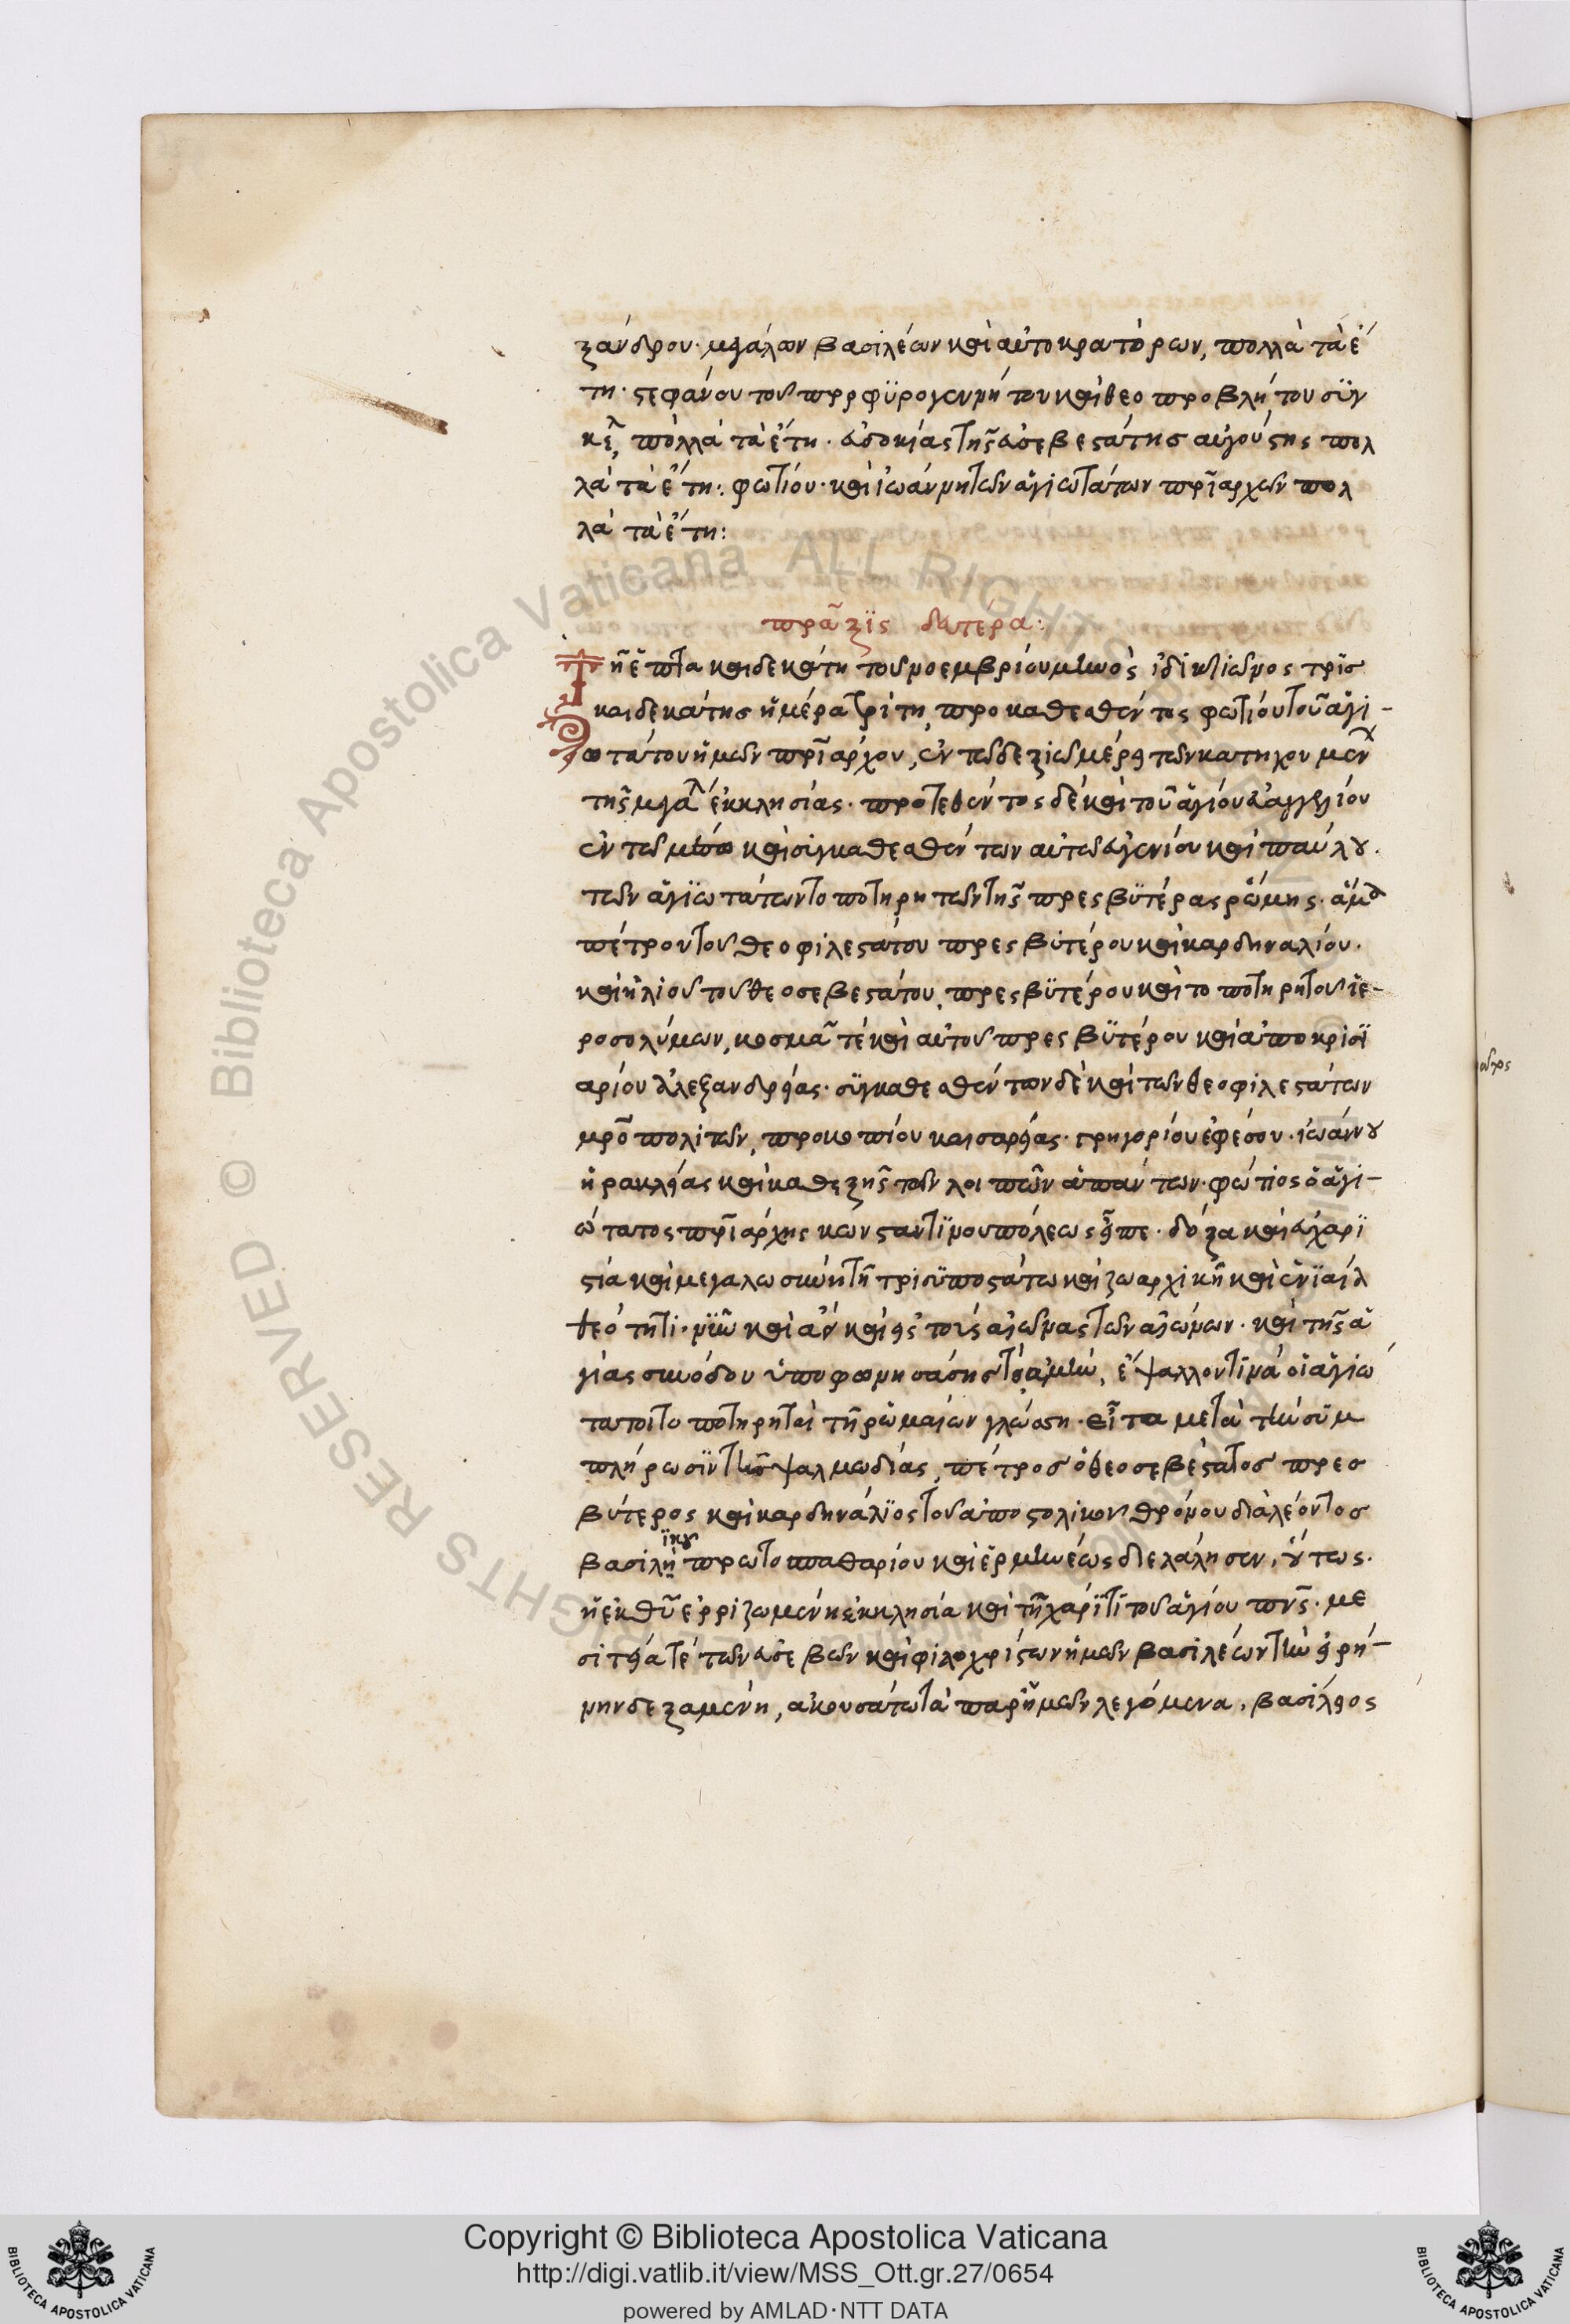 ξάνδρου· μεγάλων βασιλέων καὶ αὐτοκρατόρων, πολλὰ τὰ ἔ
τη· στεφάνου τοῦ πορφϋρογεννήτου καὶ θεοπροβλήτου σϋγ
κέλ, πολλὰ τὰ ἔτη· εὐδοκίας τῆς εὐσεβεστάτης αὐγούστης πολ
λὰ τὰ ἔτη: φωτίου· καὶ ἰωάννη τῶν ἁγιωτάτων πριαρχῶν πολ
λὰ τὰ ἔτη:
πράξϊς δευτέρα:
Τῆ ἑπτακαιδεκάτη τοῦ νοεμβρίου μηνὸς ἰνδικτιῶνος τρισ
καιδεκάτης ἡμέρα τρίτη, προκαθεσθέντος φωτίου τοῦ ἁγι-
ωτάτου ἡμῶν πριάρχου, ἐν τῶ δεξιῶ μέρει τῶν κατηχουμεν
τῆς μεγάλ ἐκκλησίας· προτεθέντος δὲ καὶ τοῦ ἁγίου εὐαγγελίου
ἐν τῶ μέσω καὶ συγκαθεσθέντων αὐτῶ εὐγενίου καὶ παύλου·
τῶν ἁγϊωτάτων τοποτηρητῶν τῆς πρεσβϋτέρας ῥώμης· ἅμα
πέτρου τοῦ θεοφιλεστάτου πρεσβυτέρου καὶ καρδηναλίου·
καὶ ἠλιοῦ τοῦ θεοσεβεστάτου, πρεσβϋτέρου καὶ τοποτηρητοῦ ἱε-
ροσολύμων, κοσμᾶ τὲ καὶ αὐτοῦ πρεσβϋτέρου καὶ ἀποκρισϊ
αρίου ἀλεξανδρείας· σϋγκαθεσθέντων δὲ καὶ τῶν θεοφιλεστάτων
μροπολιτῶν, προκοπίου καισαρείας· γρηγορίου ἐφέσου· ἰωάννου
ἡρακλείας καὶ καθεξῆς τῶν λοιπῶν ἁπάντων· φώτιος ὁ ἁγι-
ώτατος πριάρχης κωνσταντϊνουπόλεως εἶπε· δόξα καὶ εὐχαρϊ
στία καὶ μεγαλωσύνη τῆ τρισϋποστάτω καὶ ζωαρχικῆ καὶ ἑνϊαία
θεότητι· νῦν καὶ ἀεὶ καὶ εἰς τοὺς αἰῶνας τῶν αἰώνων· καὶ τῆς ἁ
γίας συνόδου ὑποφωνησάσης τὸ ἀμὴν, ἔψαλλον τινὰ οἱ ἁγιώ
τατοι τοποτηρηταὶ τῆ ῥωμαίων γλώσση· εἶτα μετὰ τὴν σϋμ
πλήρωσϊν τῆς ψαλμωδίας, πέτρος ὁ θεοσεβέστατος πρεσ
βύτερος καὶ καρδηνάλϊος τοῦ ἀποστολικοῦ θρόνου διὰ λέοντος
βασιλϊκοῦ πρωτοσπαθαρίου καὶ ἑρμηνέως διελάλησεν, οὕτως·
ἡ ἐκ θυ ἐρριζωμένη ἐκκλησία καὶ τῆ χάρϊτϊ τοῦ ἁγίου πνς· με
σιτεία τὲ τῶν εὐσεβῶν καὶ φιλοχρίστων ἡμῶν βασιλέων τὴν εἰρή-
νην δεξαμένη, ἀκουσάτω τὰ παρ' ἡμῶν λεγόμενα, βασίλειος
Copyright © Biblioteca Apostolica Vaticana
http://digi.vatlib.it/view/MSS_Ott.gr.27/0654
powered by AMLAD·NTT DATA